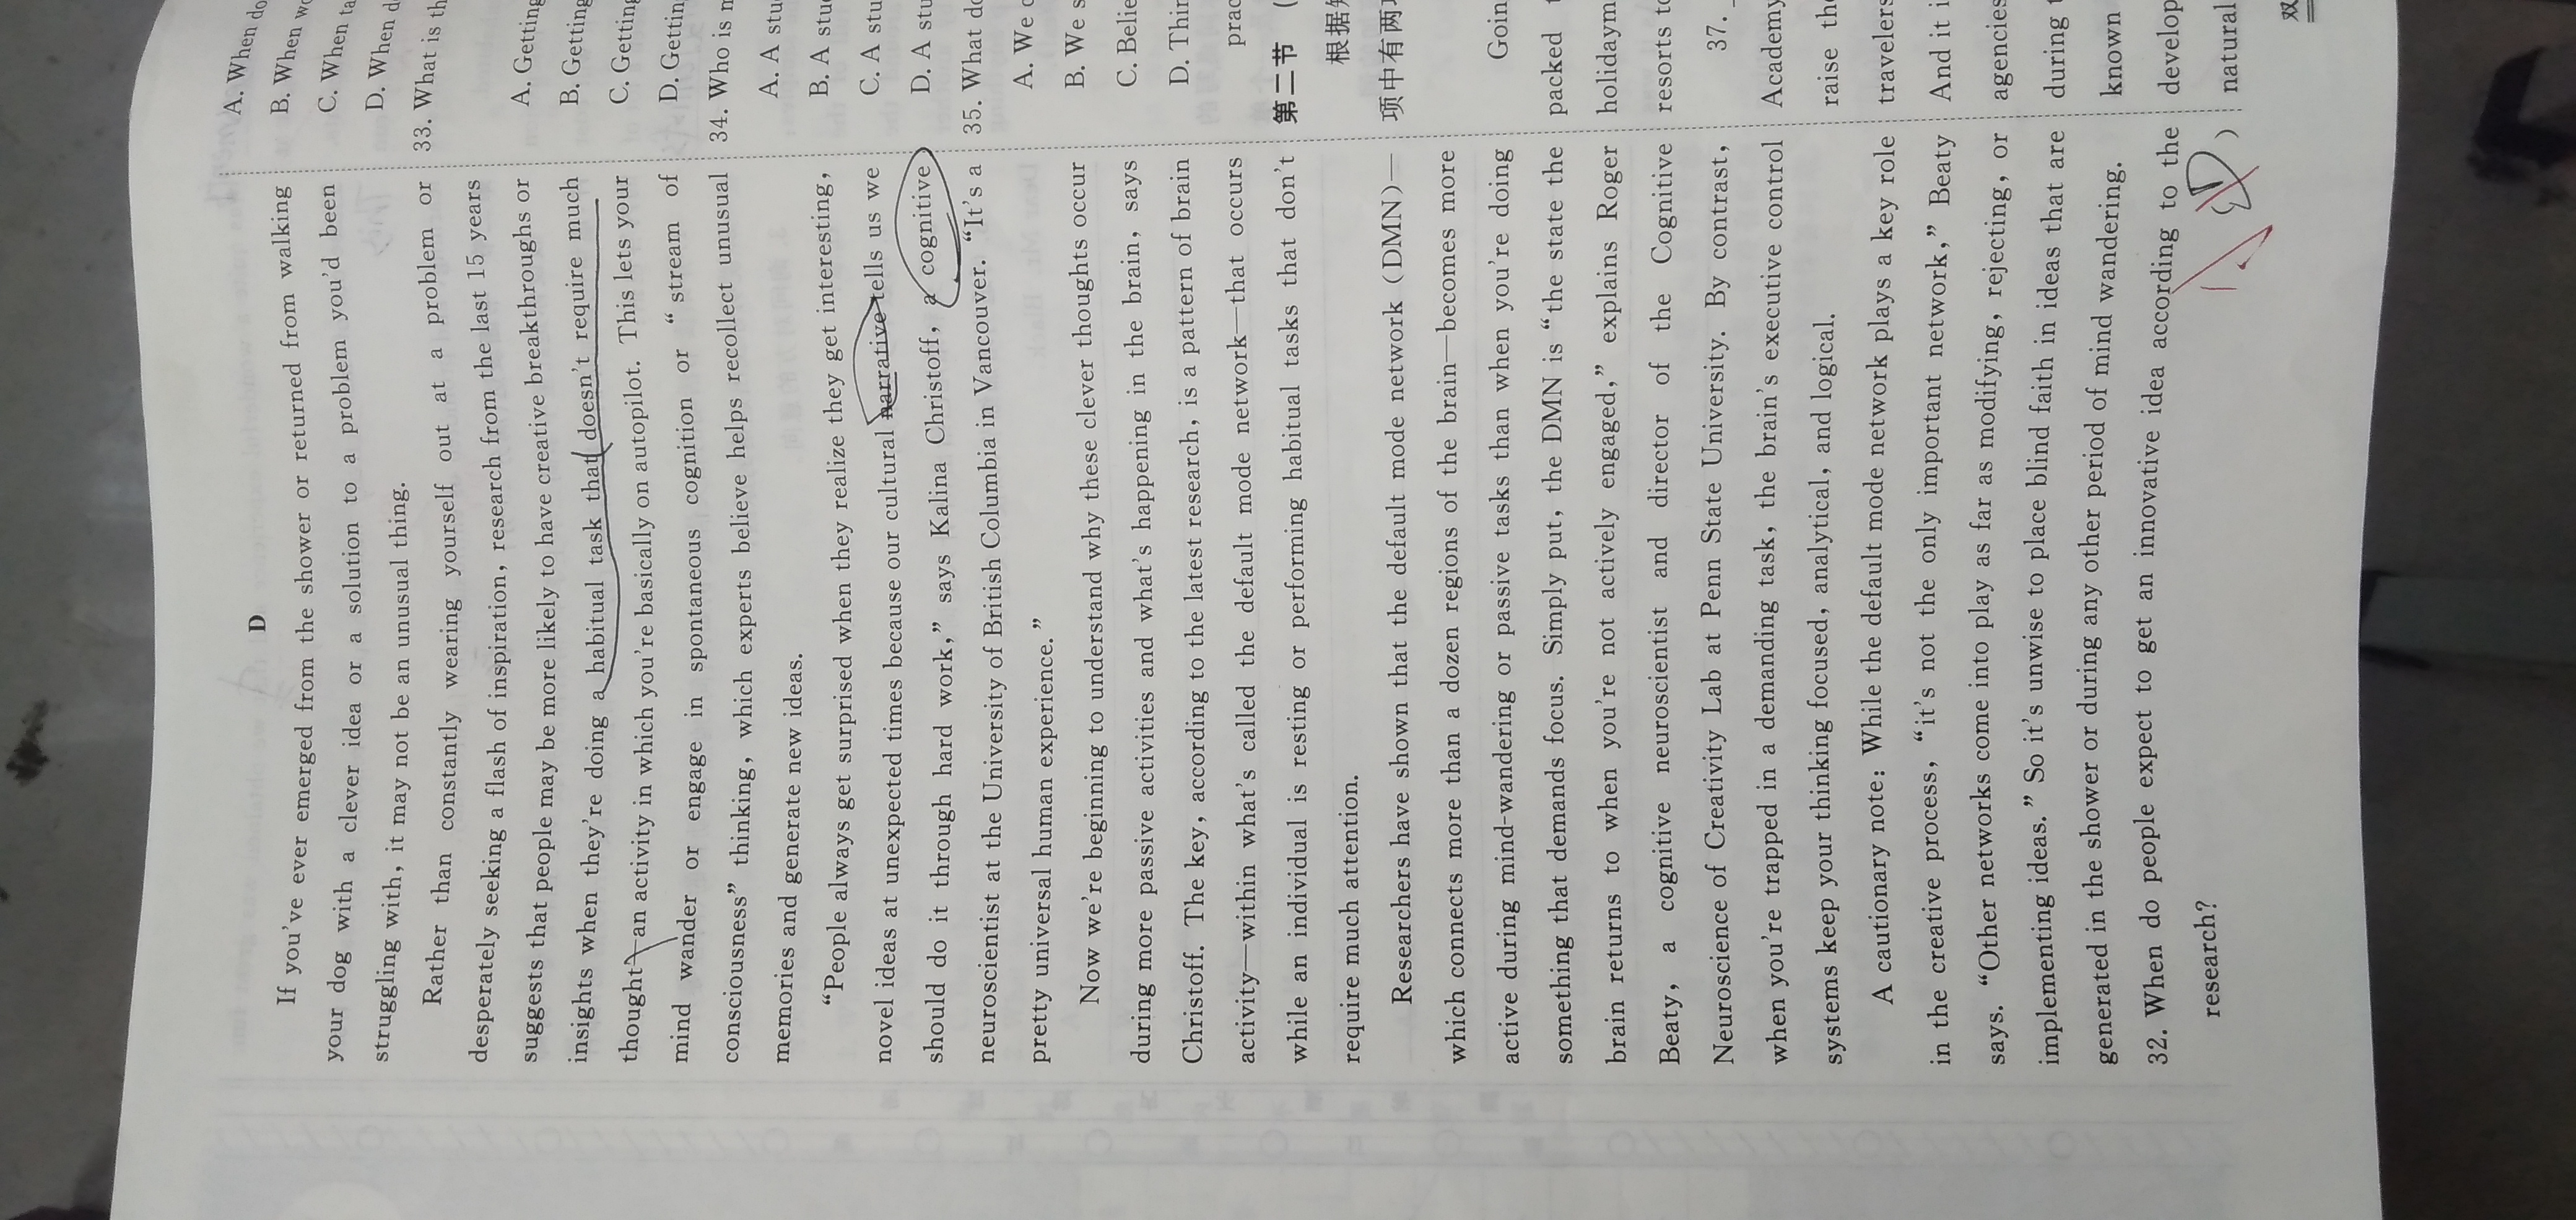 D
If you've ever emerged from the shower or returned from walking
your dog with a clever idea or a solution to a problem you'd been
struggling with, it may not be an unusual thing.
Rather than constantly wearing yourself out at a problem or
desperately seeking a flash of inspiration, research from the last 15 years
suggests that people may be more likely to have creative breakthroughs or
insights when they're doing a habitual task that doesn't require much
thought—an activity in which you're basically on autopilot. This lets your
mind wander or engage in spontaneous cognition or “stream of
consciousness” thinking, which experts believe helps recollect unusual
memories and generate new ideas.
“People always get surprised when they realize they get interesting,
novel ideas at unexpected times because our cultural narrative tells us we
should do it through hard work,” says Kalina Christoff, a cognitive
neuroscientist at the University of British Columbia in Vancouver. “It's a
pretty universal human experience.”
Now we're beginning to understand why these clever thoughts occur
during more passive activities and what's happening in the brain, says
Christoff. The key, according to the latest research, is a pattern of brain
activity—within what's called the default mode network—that occurs
while an individual is resting or performing habitual tasks that don't
require much attention.
Researchers have shown that the default mode network (DMN)—
which connects more than a dozen regions of the brain—becomes more
active during mind-wandering or passive tasks than when you're doing
something that demands focus. Simply put, the DMN is “the state the
brain returns to when you're not actively engaged,” explains Roger
Beaty, a cognitive neuroscientist and director of the Cognitive
Neuroscience of Creativity Lab at Penn State University. By contrast,
when you're trapped in a demanding task, the brain's executive control
systems keep your thinking focused, analytical, and logical.
A cautionary note: While the default mode network plays a key role
in the creative process, “it's not the only important network,” Beaty
says. “Other networks come into play as far as modifying, rejecting, or
implementing ideas.” So it's unwise to place blind faith in ideas that are
generated in the shower or during any other period of mind wandering.
32. When do people expect to get an innovative idea according to the
research? ( )
A. When do
B. When
C. When
D. When
33. What is
A. Getting
B. Getting
C. Getting
D. Getting
34. Who is
A. A
B. A
C. A
D. A
35. What do
A. We
B. We
C.
D.
第二节 (
根据
项中有两
Goin
packed
holidaym
resorts
37.
Academy
raise
travelers
And it
agencies
during
known
develop
natural
双